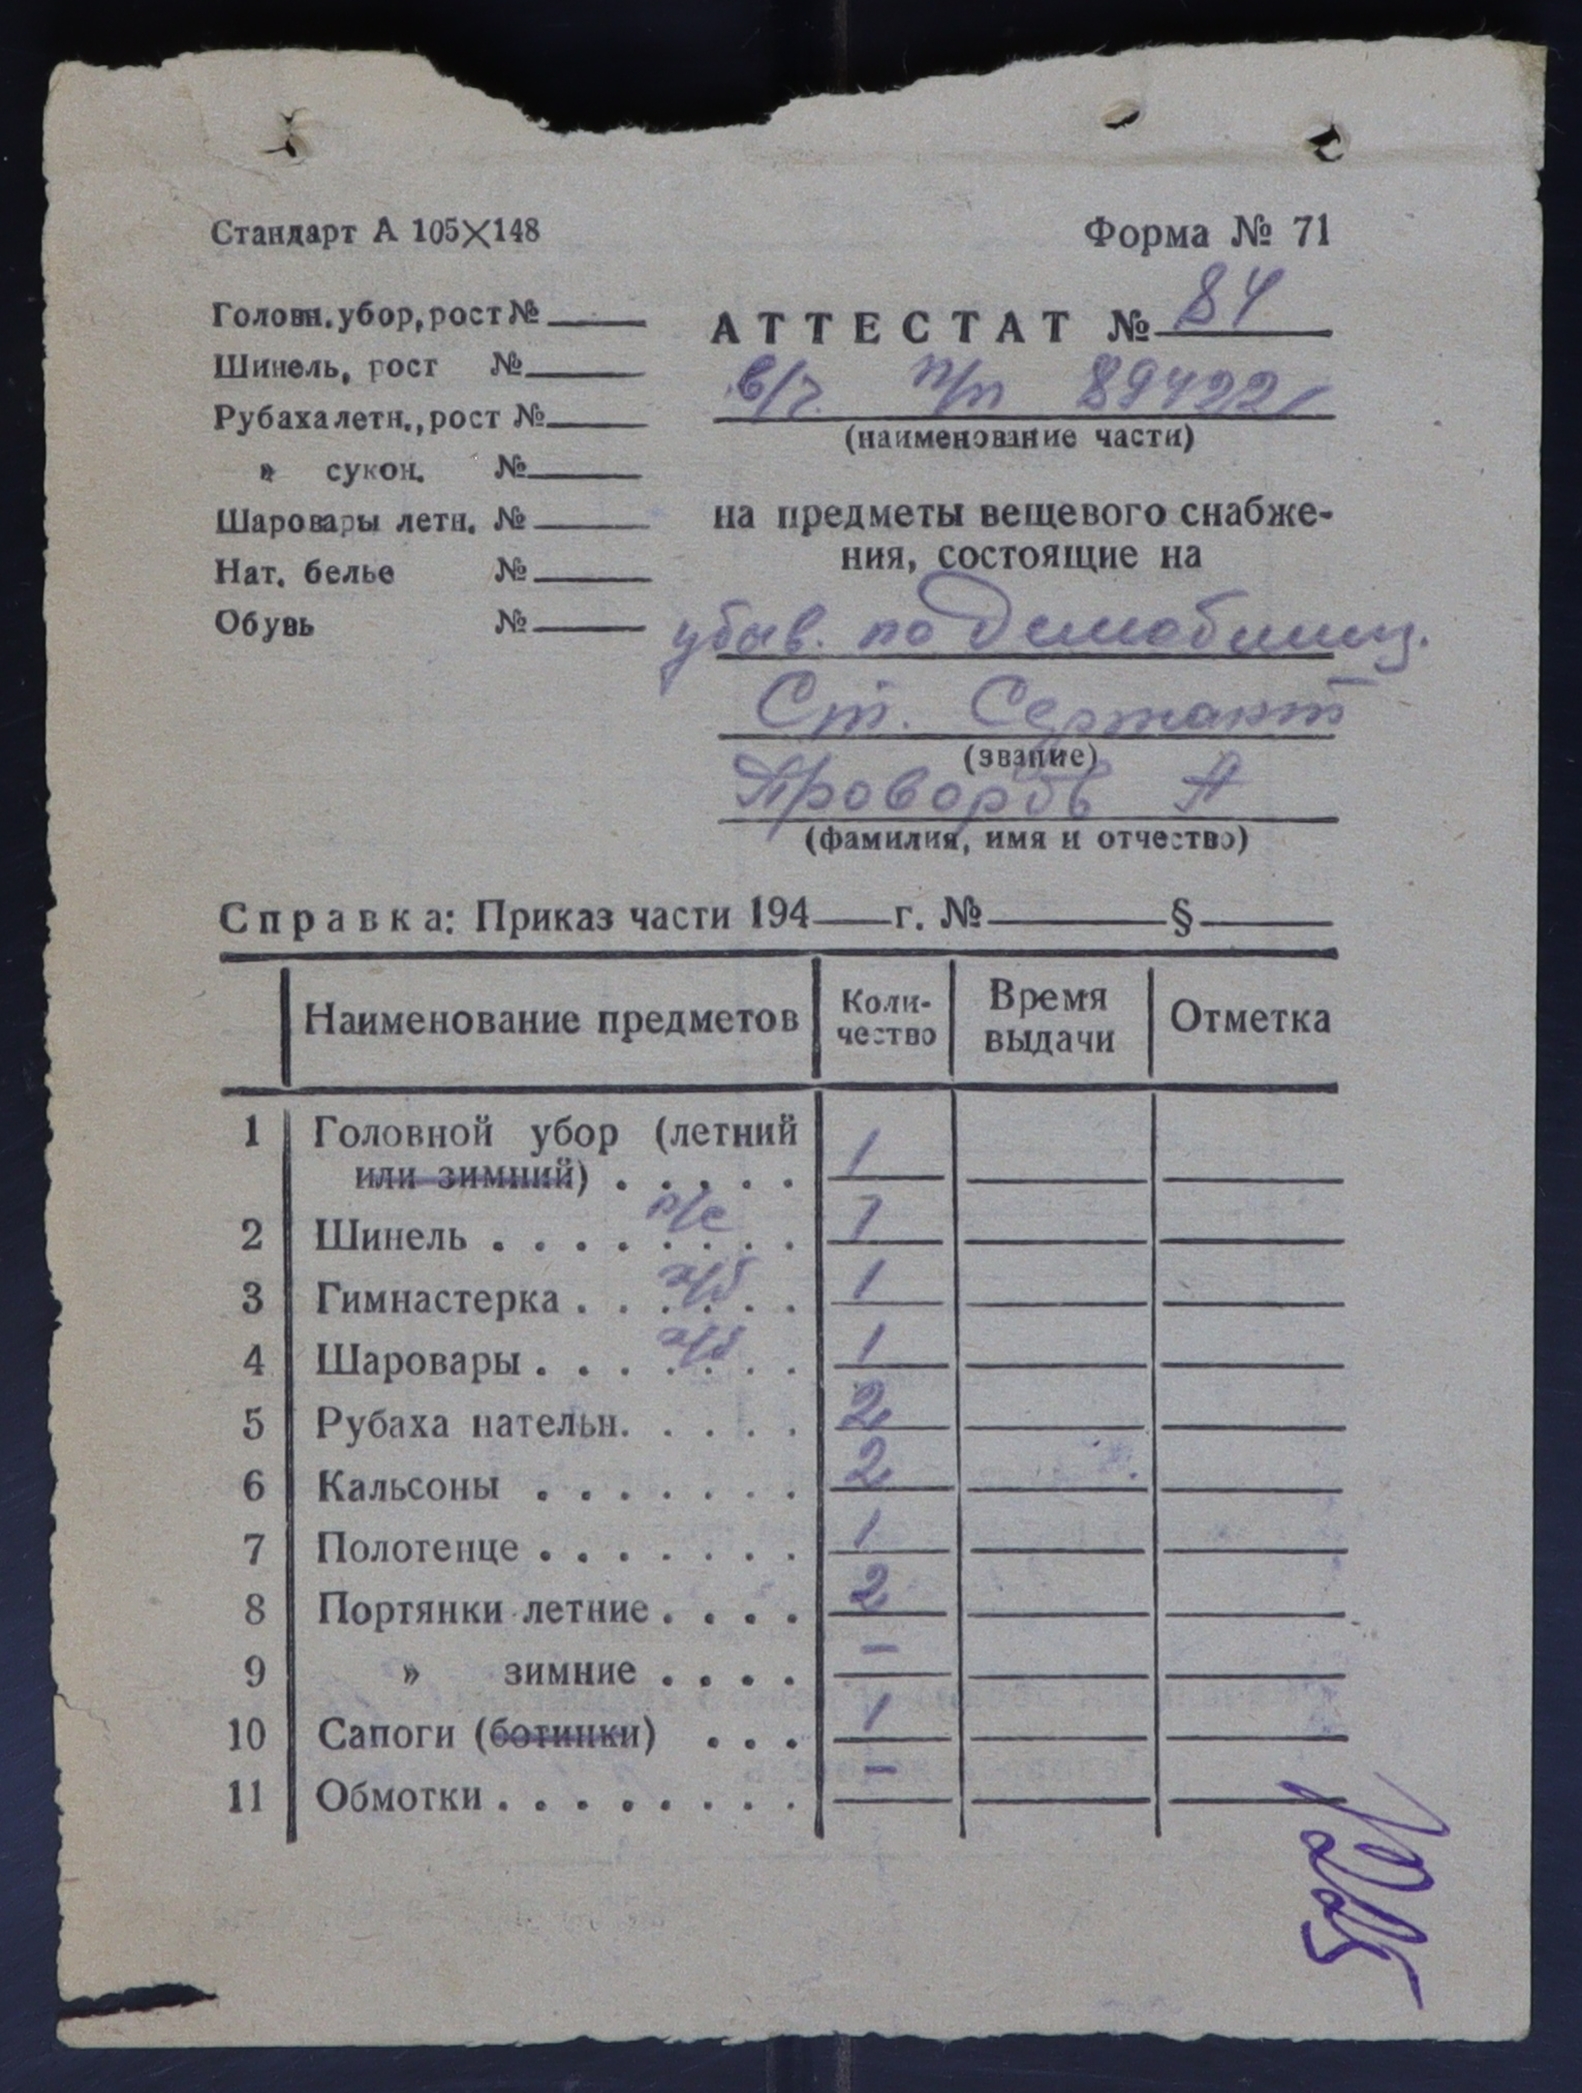 Стандарт А 105×148
Форма № 71
Головн. убор, рост №
Шинель, рост №
Рубаха летн., рост №
» сукон. №
Шаровары летн. №
Нат. белье №
Обувь №
АТТЕСТАТ № 84
в/ч. п/п 89422
(наименование части)
на предметы вещевого снабже-
ния, состоящие на
убыв. по демобилиз.
Ст. Сержант
(звание)
Проворов А
(фамилия, имя и отчество)
Справка: Приказ части 194 г. № §
Наименование предметов Коли-чество Время выдачи Отметка
1 Головной убор (летний
или зимний) . . . . . 1
2 Шинель . . . . . . . . 1
3 Гимнастерка . . . . . . х/б 1
4 Шаровары . . . . . . . х/б 1
5 Рубаха нательн. . . . . 2
6 Кальсоны . . . . . . . 2
7 Полотенце . . . . . . . 1
8 Портянки летние . . . . 2
9 » зимние . . . . –
10 Сапоги (ботинки) . . . 1
11 Обмотки . . . . . . . . –